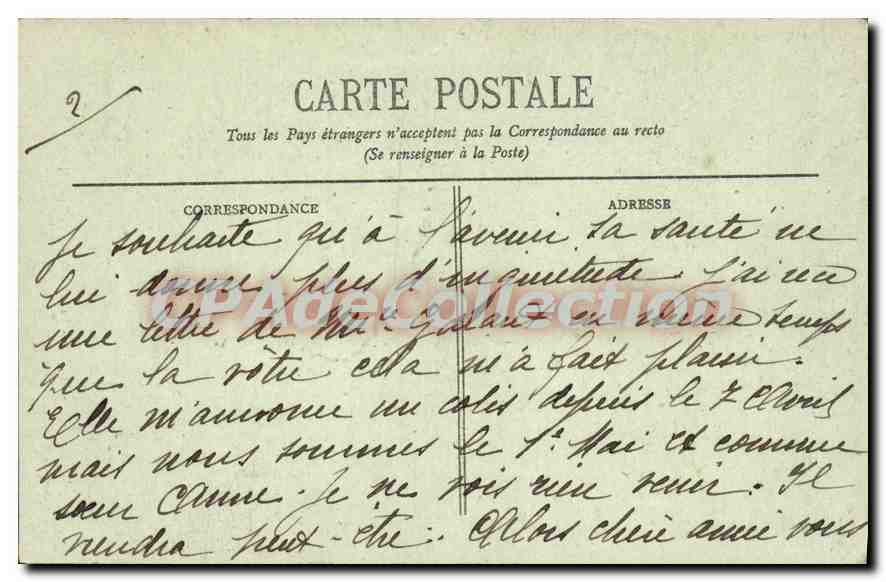 2
CARTE POSTALE
Tous les Pays étrangers n'acceptent pas la Correspondance au recto
(Se renseigner à la Poste)
CORRESPONDANCE
ADRESSE
Je souhaite qu'à l'avenir sa santé ne
lui donne plus d'inquiétude. J'ai reçu
une lettre de Mme Galant en même temps
que la vôtre cela m'a fait plaisir.
Elle m'annonce un colis depuis le 7 Avril
mais nous sommes le 1er Mai et comme
sœur Anne. Je ne vois rien venir. Il
viendra peut-être. Alors chère amie vous
CPAdeCollection